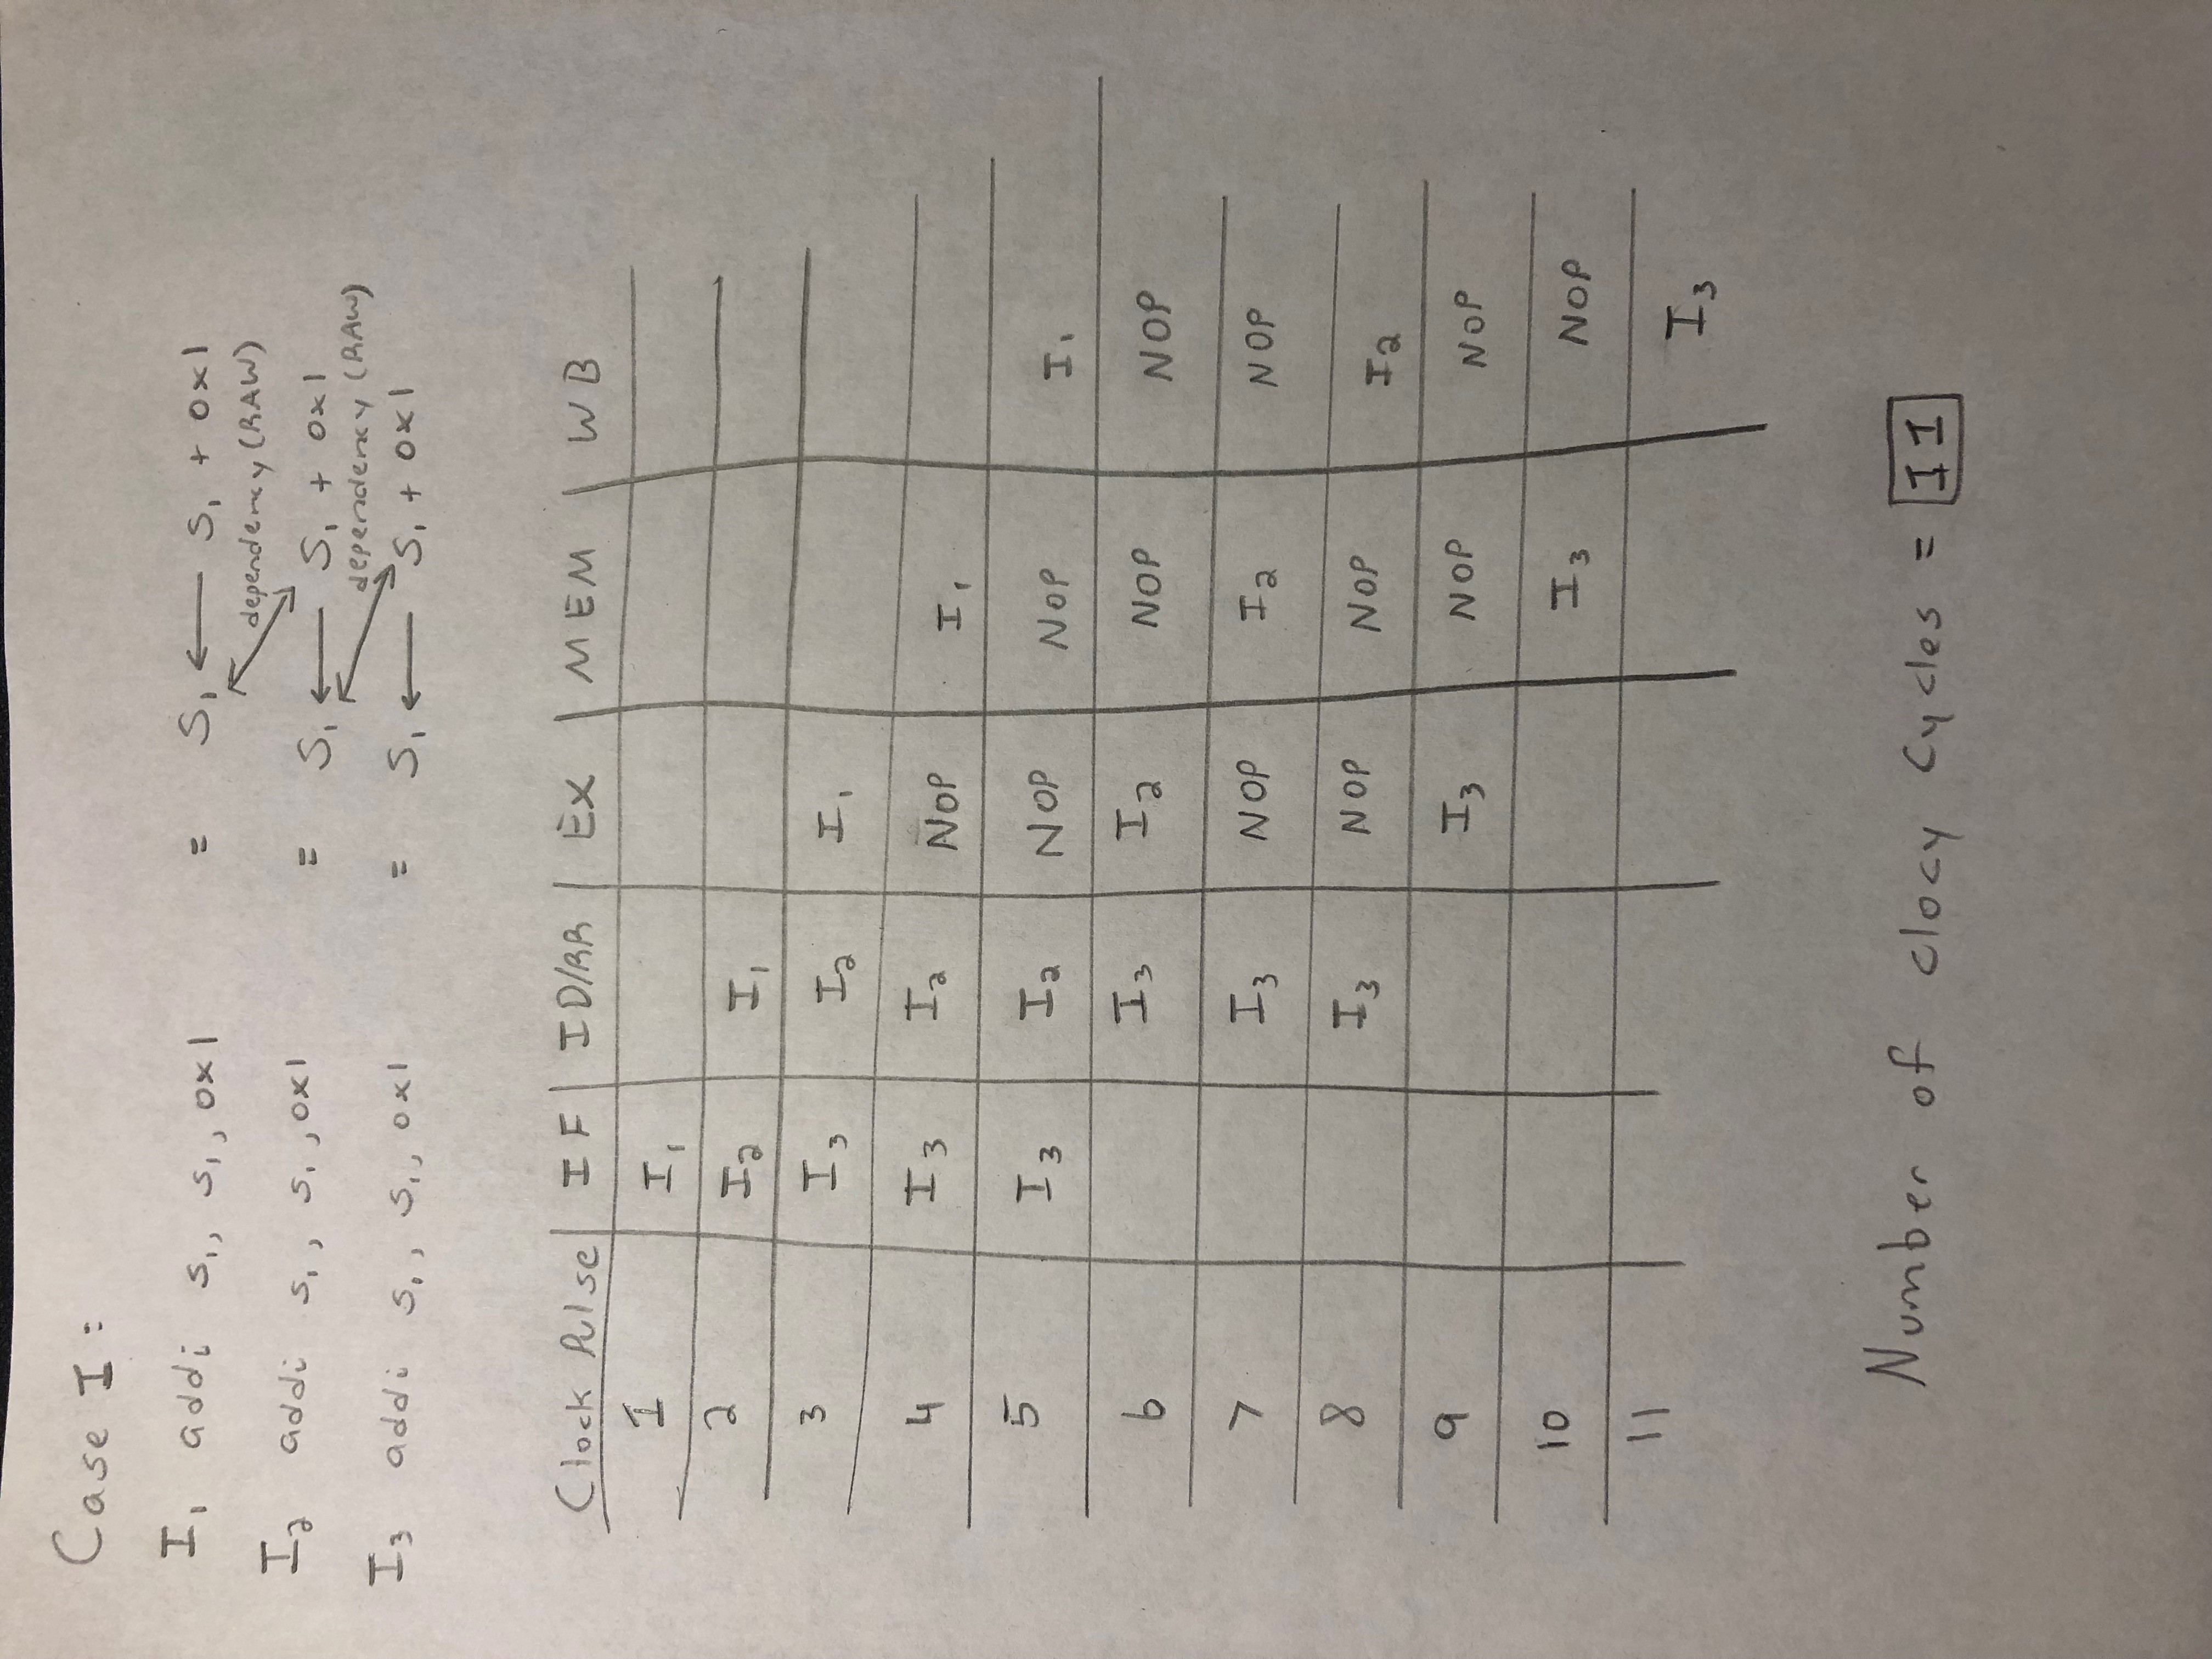 Case I:
I1 addi s1, s1, 0x1 = S1 ← S1 + 0x1
dependency (RAW)
I2 addi s1, s1, 0x1 = S1 ← S1 + 0x1
dependency (RAW)
I3 addi s1, s1, 0x1 = S1 ← S1 + 0x1
Clock Pulse IF ID/RR EX MEM WB
1 I1
2 I2 I1
3 I3 I2 I1
4 I3 I2 NOP I1
5 I3 I2 NOP NOP I1
6 I3 I2 NOP NOP
7 I3 NOP I2 NOP
8 I3 NOP NOP I2
9 I3 NOP NOP
10 I3 NOP
11 I3
Number of clocy cycles = 11